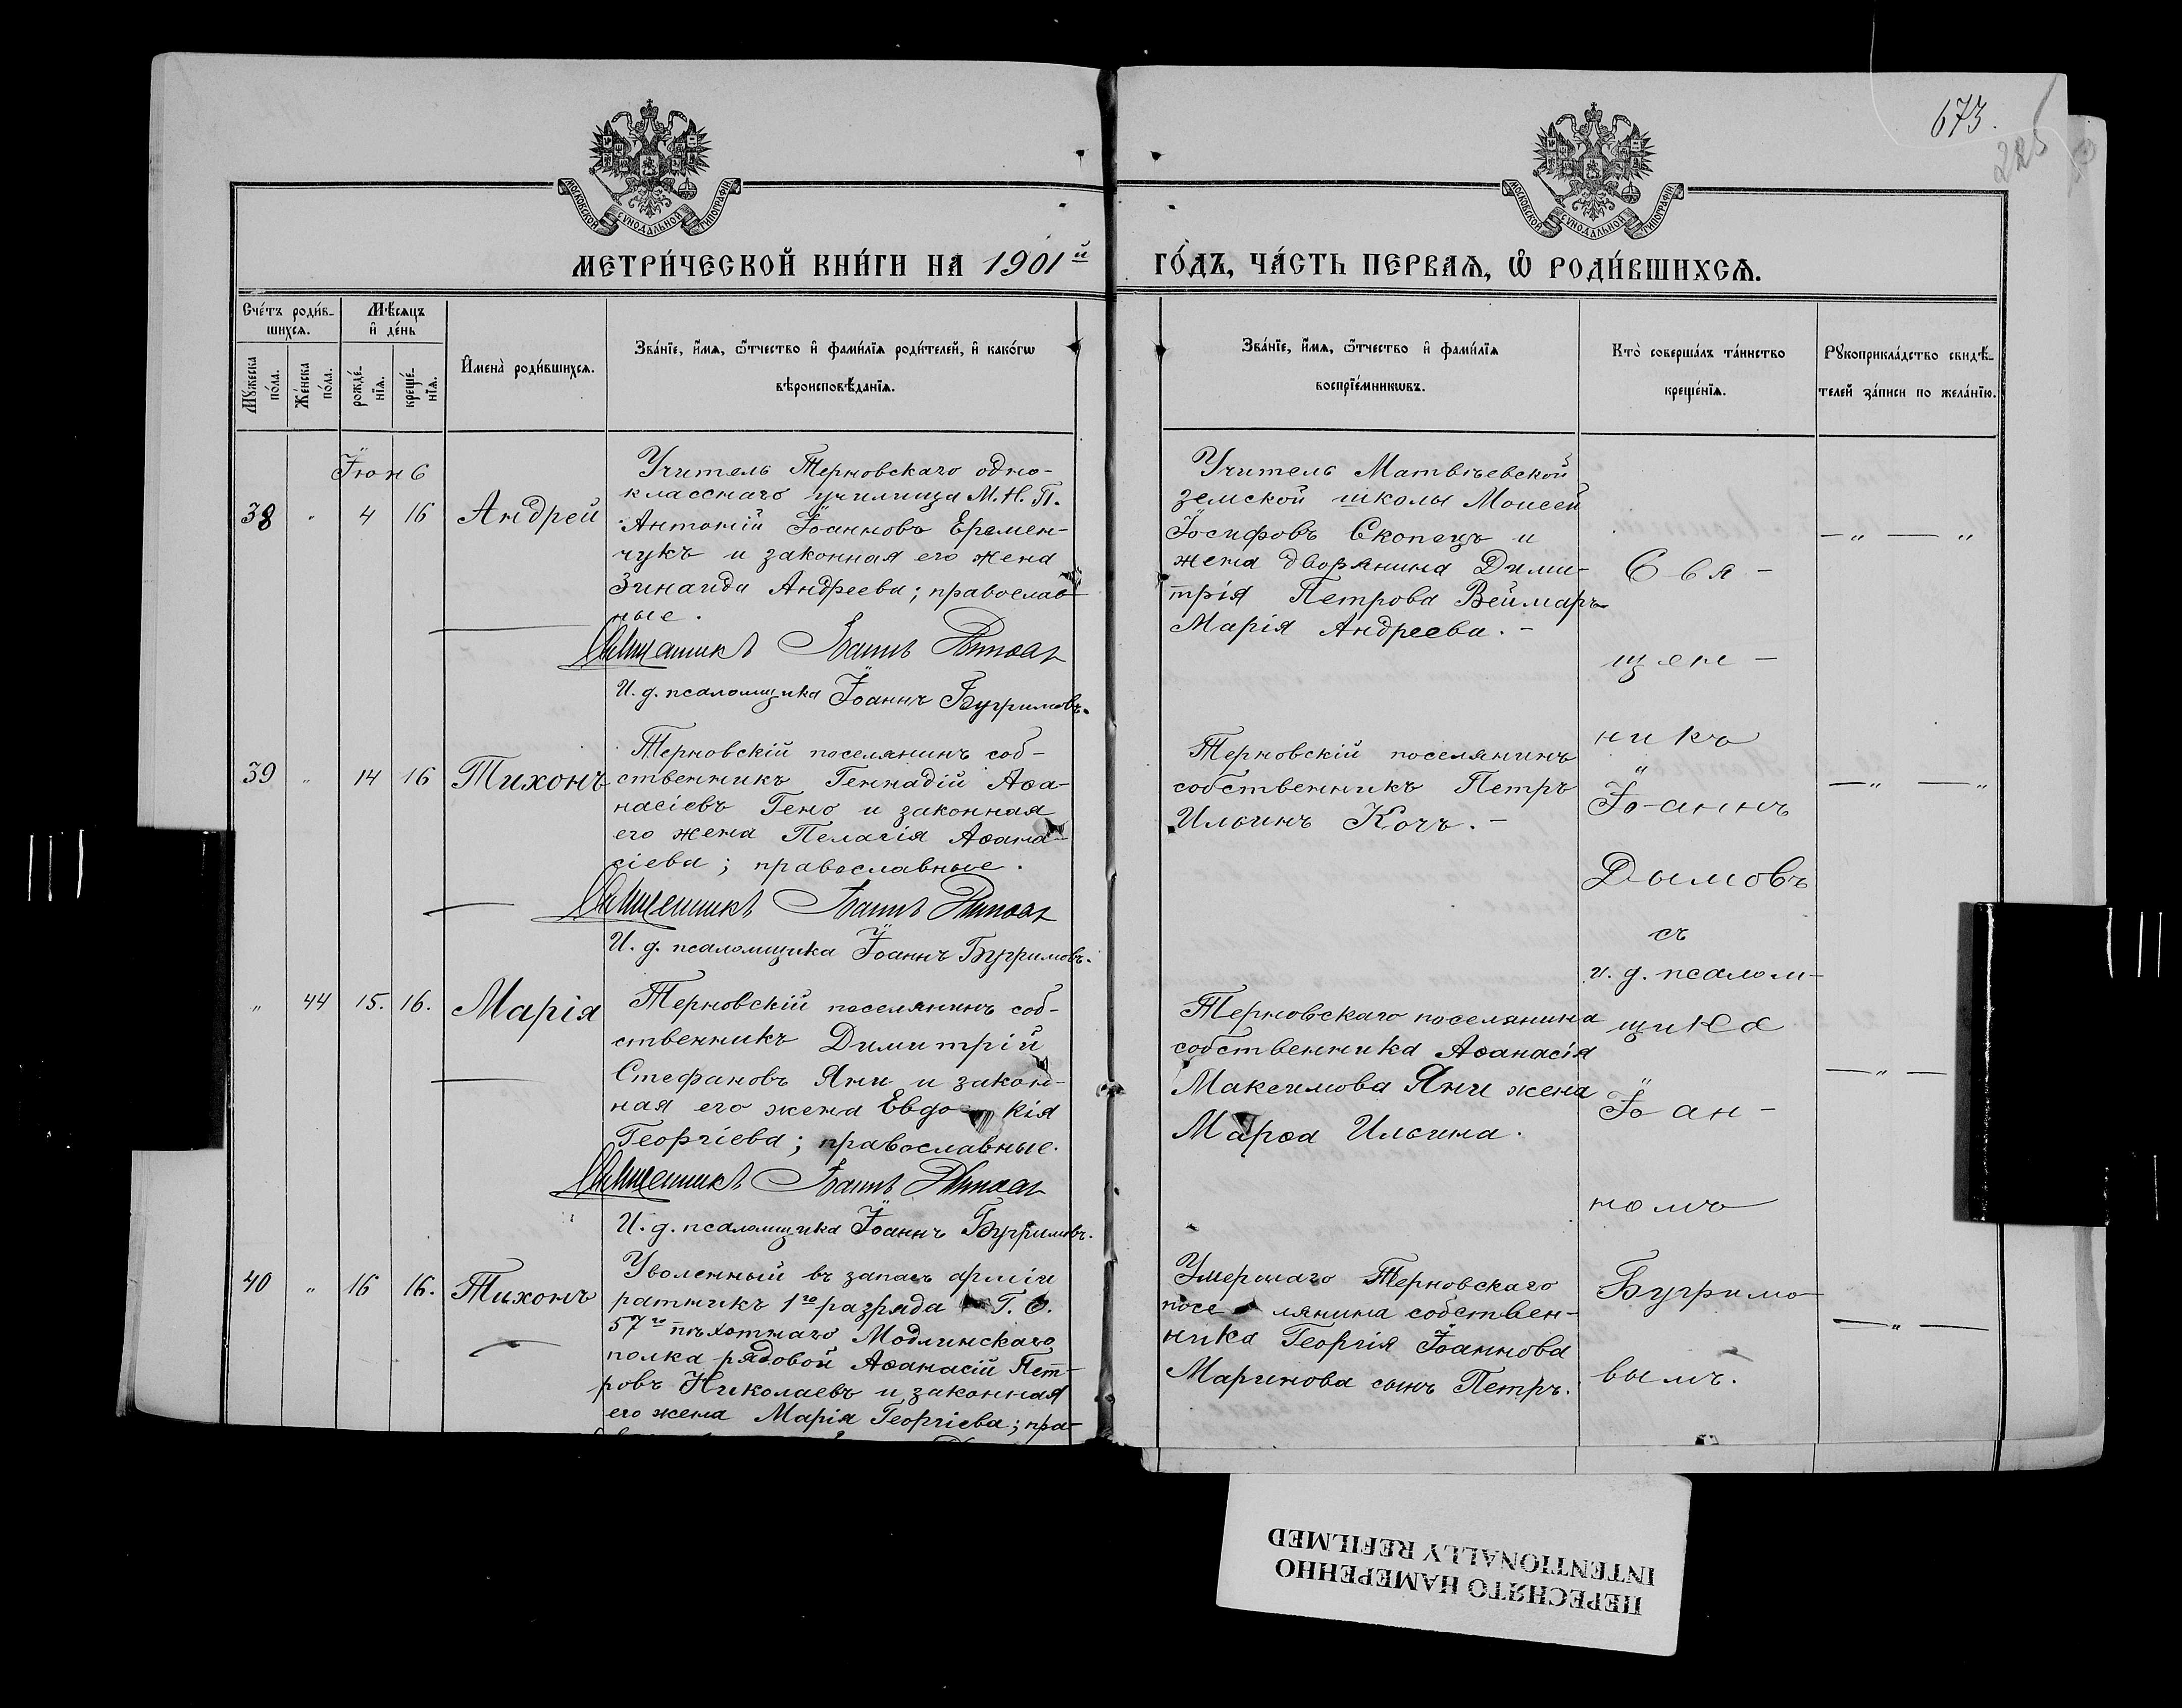 673.
225
МОСКОВСКОЙ СѴНОДАЛЬНОЙ ТИПОГРАФІИ
МОСКОВСКОЙ СѴНОДАЛЬНОЙ ТИПОГРАФІИ
МЕТРИ́ЧЕСКОЙ КНИ́ГИ НА 1901й
ГО́ДЪ, ЧА́СТЬ ПЕРВАѦ, Ѽ РОДИ́ВШИХСѦ.
Счéтъ роди́в-
шихсѧ.
Мꙋ́жеска
по́ла.
Же́нска
по́ла.
Мѣ́сѧцъ
и҆ де́нь
рожде́-
нїѧ.
креще́-
нїѧ.
И҆мена̀ роди́вшихсѧ.
Зва́нїе, и҆́мѧ, ѻ҆́тчество и҆ фами́лїѧ роди́телей, и҆ како́гѡ
вѣроисповѣ́данїѧ.
Зва́нїе, и҆́мѧ, ѻ҆́тчество и҆ фами́лїѧ
воспрїе́мникѡвъ.
Кто̀ соверша́лъ та́инство
креще́нїѧ.
Рꙋкоприкла́дство свидѣ́-
телей за́писи по жела́нїю.
Іюнь
38 " 4 16 Андрей
Учитель Терновскаго одно-
класснаго училища М. Н. П.
Антоній Іоанновъ Еремен-
чукъ и законная его жена
Зинаида Андреева; православ-
ные.
Священникъ Іоаннъ Дымовъ
И. д. псаломщика Іоаннъ Бугримовъ.
Учитель Матвѣевской
земской школы Моисей
Іосифовъ Скопецъ и
жена дворянина Дими-
трія Петрова Веймаръ
Марія Андреева. -
— " — "
39 " 14 16 Тихонъ
Терновскій поселянинъ соб-
ственникъ Геннадій Аѳа-
насіевъ Гено и законная
его жена Пелагія Аѳана-
сіева; православные.
Священникъ Іоаннъ Дымовъ
И. д. псаломщика Іоаннъ Бугримовъ.
Терновскій поселянинъ
собственникъ Петръ
Ильинъ Кочъ. -
— " — "
" 44 15. 16. Марія
Терновскій поселянинъ соб-
ственникъ Димитрій
Стефановъ Яни и закон-
ная его жена Евдо кія
Георгіева; православные.
Священникъ Іоаннъ Дымовъ
И. д. псаломщика Іоаннъ Бугримовъ.
Терновскаго поселянина
собственника Аѳанасія
Максимова Яни жена
Марѳа Ильина.
— " —
40 " 16 16. Тихонъ
Уволенный въ запасъ арміи
ратникъ 1го разряда Г. О.
57го пѣхотнаго Модлинскаго
полка рядовой Аѳанасій Пет-
ровъ Николаевъ и законная
его жена Марія Георгіева; пра-
Умершаго Терновскаго
посе лянина собствен-
ника Георгія Іоаннова
Маринова сынъ Петръ.
— " —
Свя-
щен-
никъ
Іо-аннъ
Дымовъ
съ
и. д. псалом-
щика
Іоан-
номъ
Бугримо-
вымъ.
ПЕРЕСНЯТО НАМЕРЕННО
INTENTIONALLY REFILMED